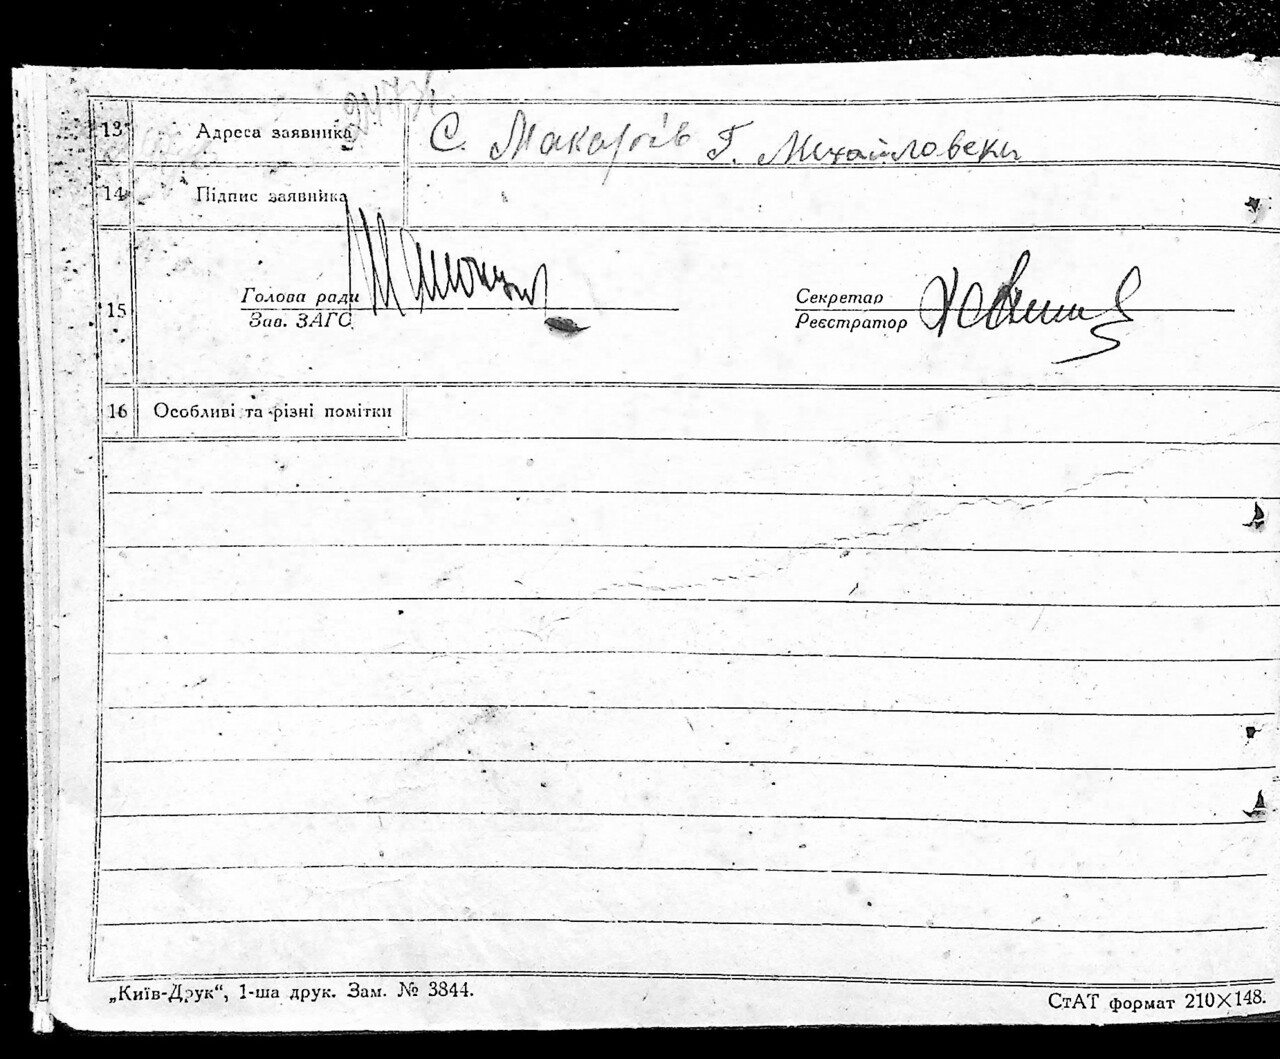 13 Адреса заявника С. Макарів Г. Михайловски
14 Підпис заявника
15 Голова ради Секретар
Зав. ЗАГС Реєстратор
16 Особливі та різні помітки
„Київ-Друк“, 1-ша друк. Зам. № 3844. СтАТ формат 210×148.